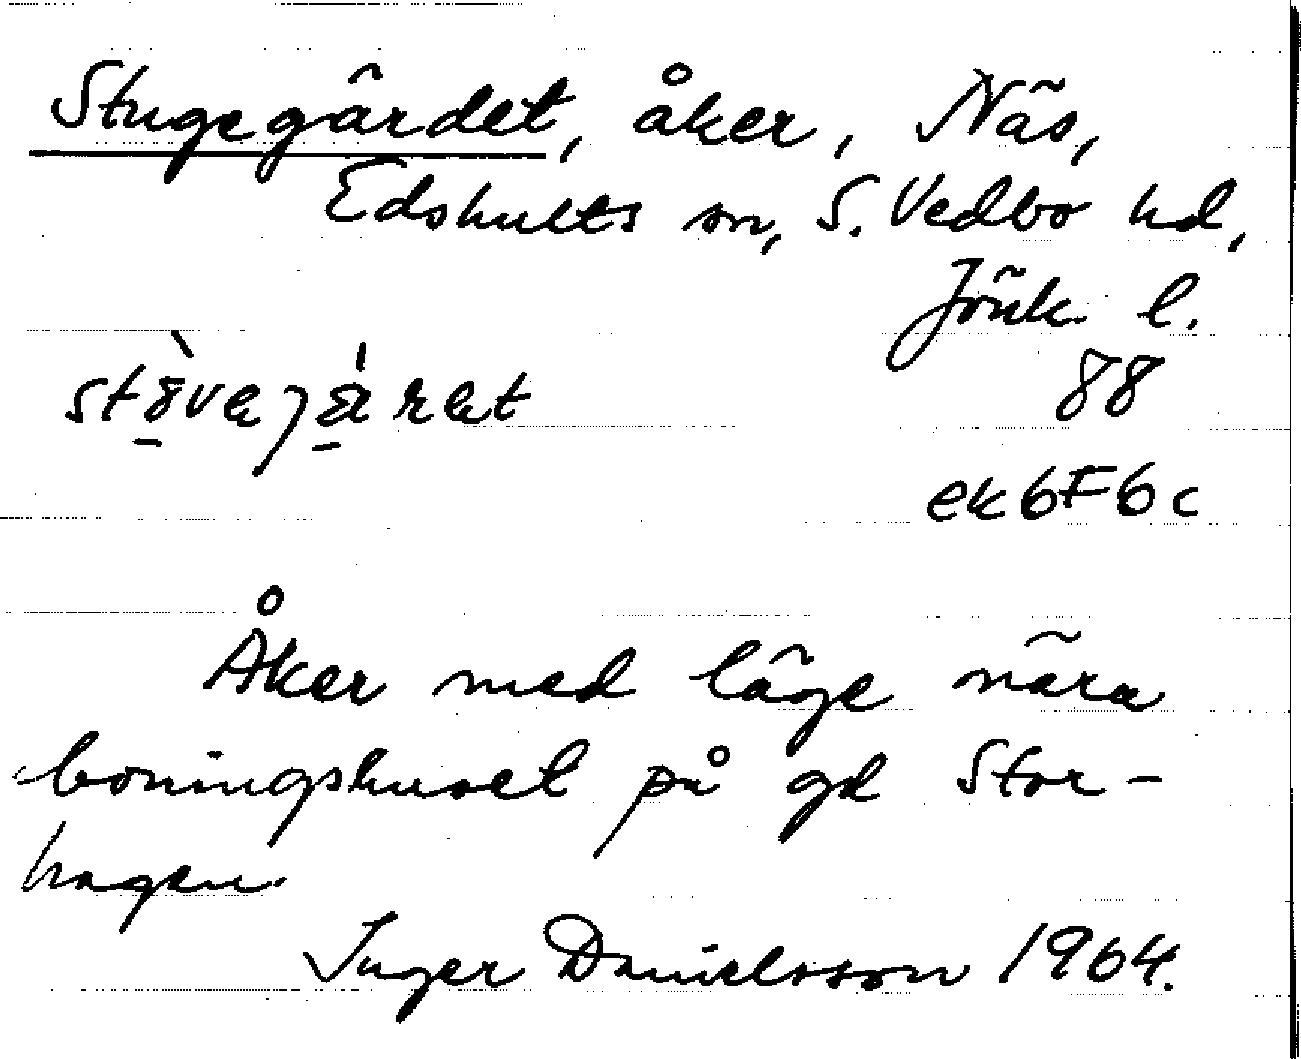 Stugegärdet, åker, Näs,
Edshults sn, S. Vedbo hd,
Jönk. l.
88
ek 6F6c
Åker med läge nära
boningshuset på gd Stor-
hagen.
Inger Danielsson 1964.